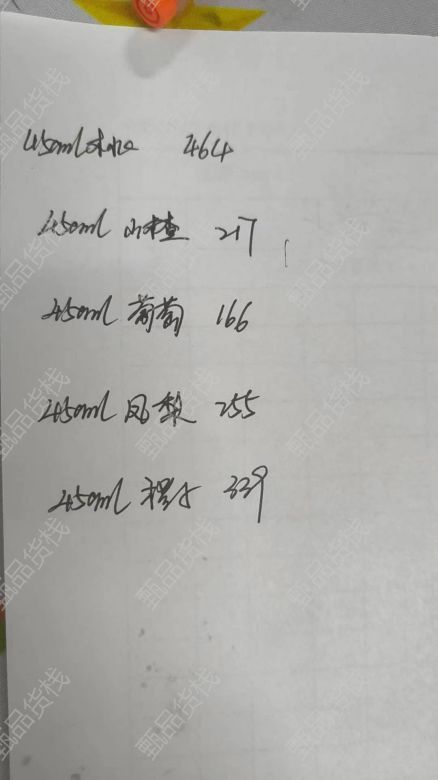 450ml 水地 464
450ml 山楂 217
450ml 葡萄 166
450ml 凤梨 255
450ml 339
甄品货栈